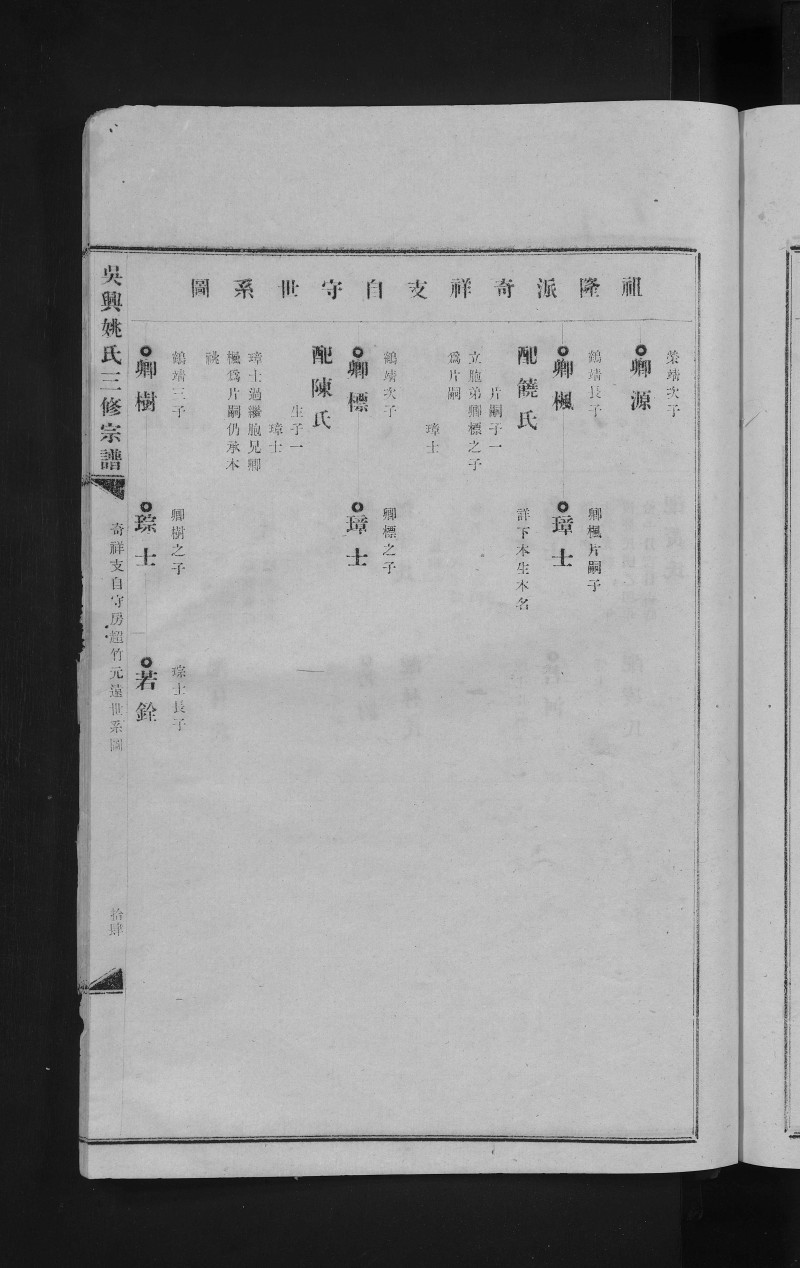 祖隆派奇祥支自守世系圖
榮靖次子
卿源
鶴靖長子
卿楓
配饒氏
片嗣子一
立胞弟卿標之子
爲片嗣
璋士
鶴靖次子
卿標
配陳氏
生子一
璋士
璋士過繼胞兄卿
楓爲片嗣仍承本
祧
鶴靖三子
卿樹
卿楓片嗣子
璋士
詳下本生本名
卿標之子
璋士
卿樹之子
琮士
琮士長子
若銓
吳興姚氏三修宗譜
奇祥支自守房超竹元遠世系圖
拾肆